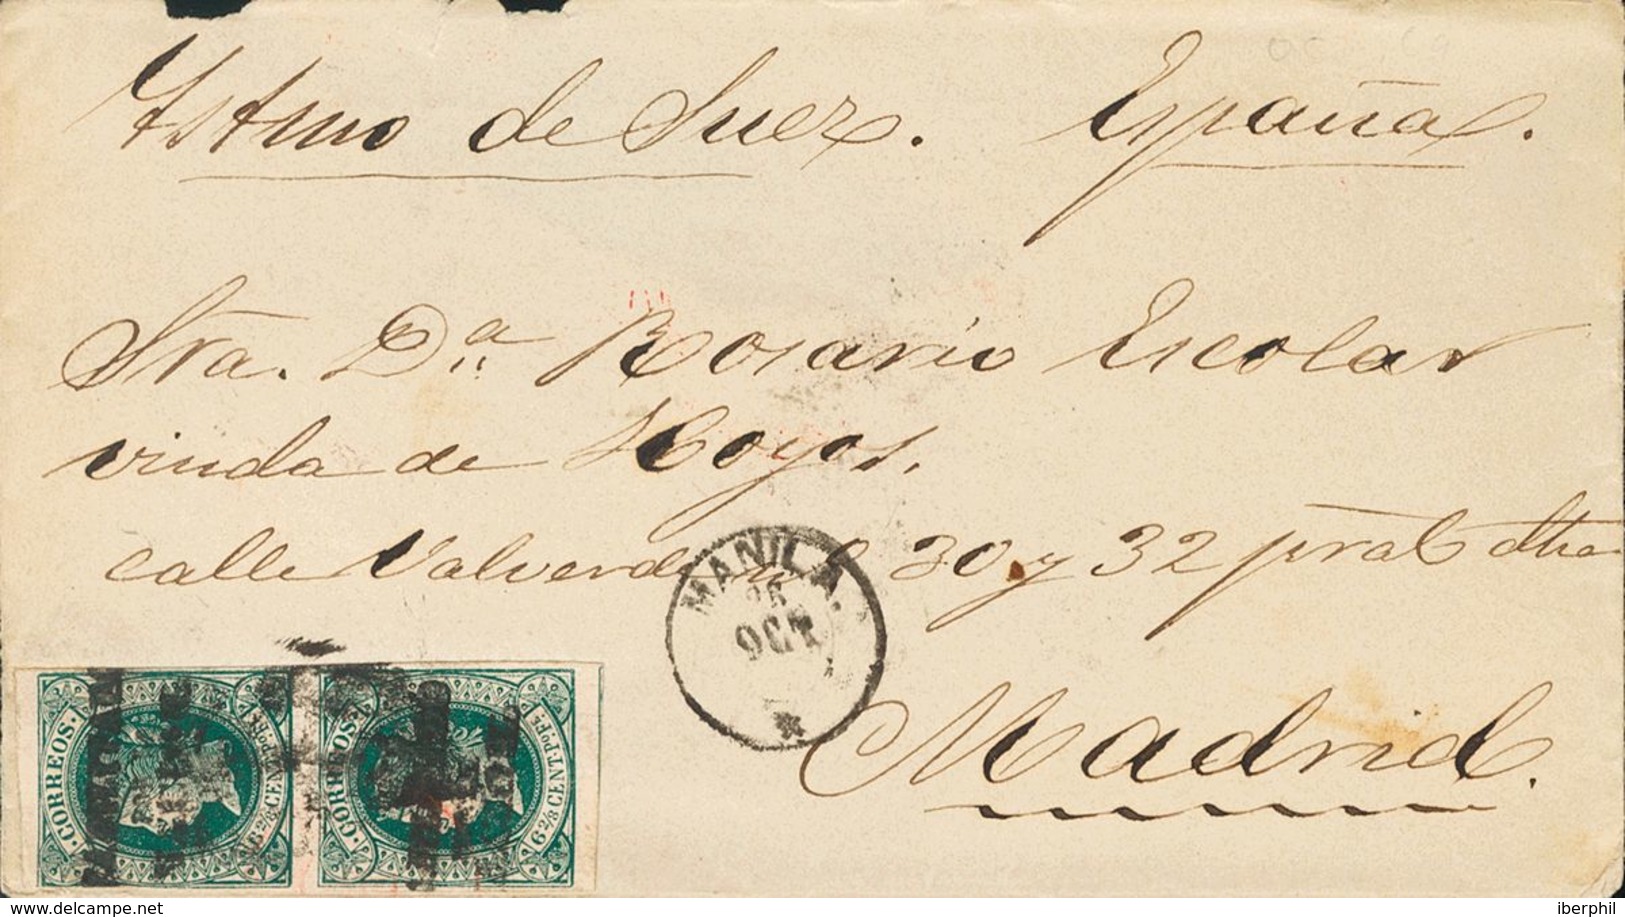 Istmo de Suez. España.
Sra. Dª Rosario Escolar
viuda de Hoyos.
calle Valverde nº 30 y 32 pral dha
Madrid.
MANILA.
26
OCT
CORREOS
6 2/8 CENT. PO Fᵗᵉ
CORREOS
6 2/8 CENT. PO Fᵗᵉ
delcampe.net
iberphil